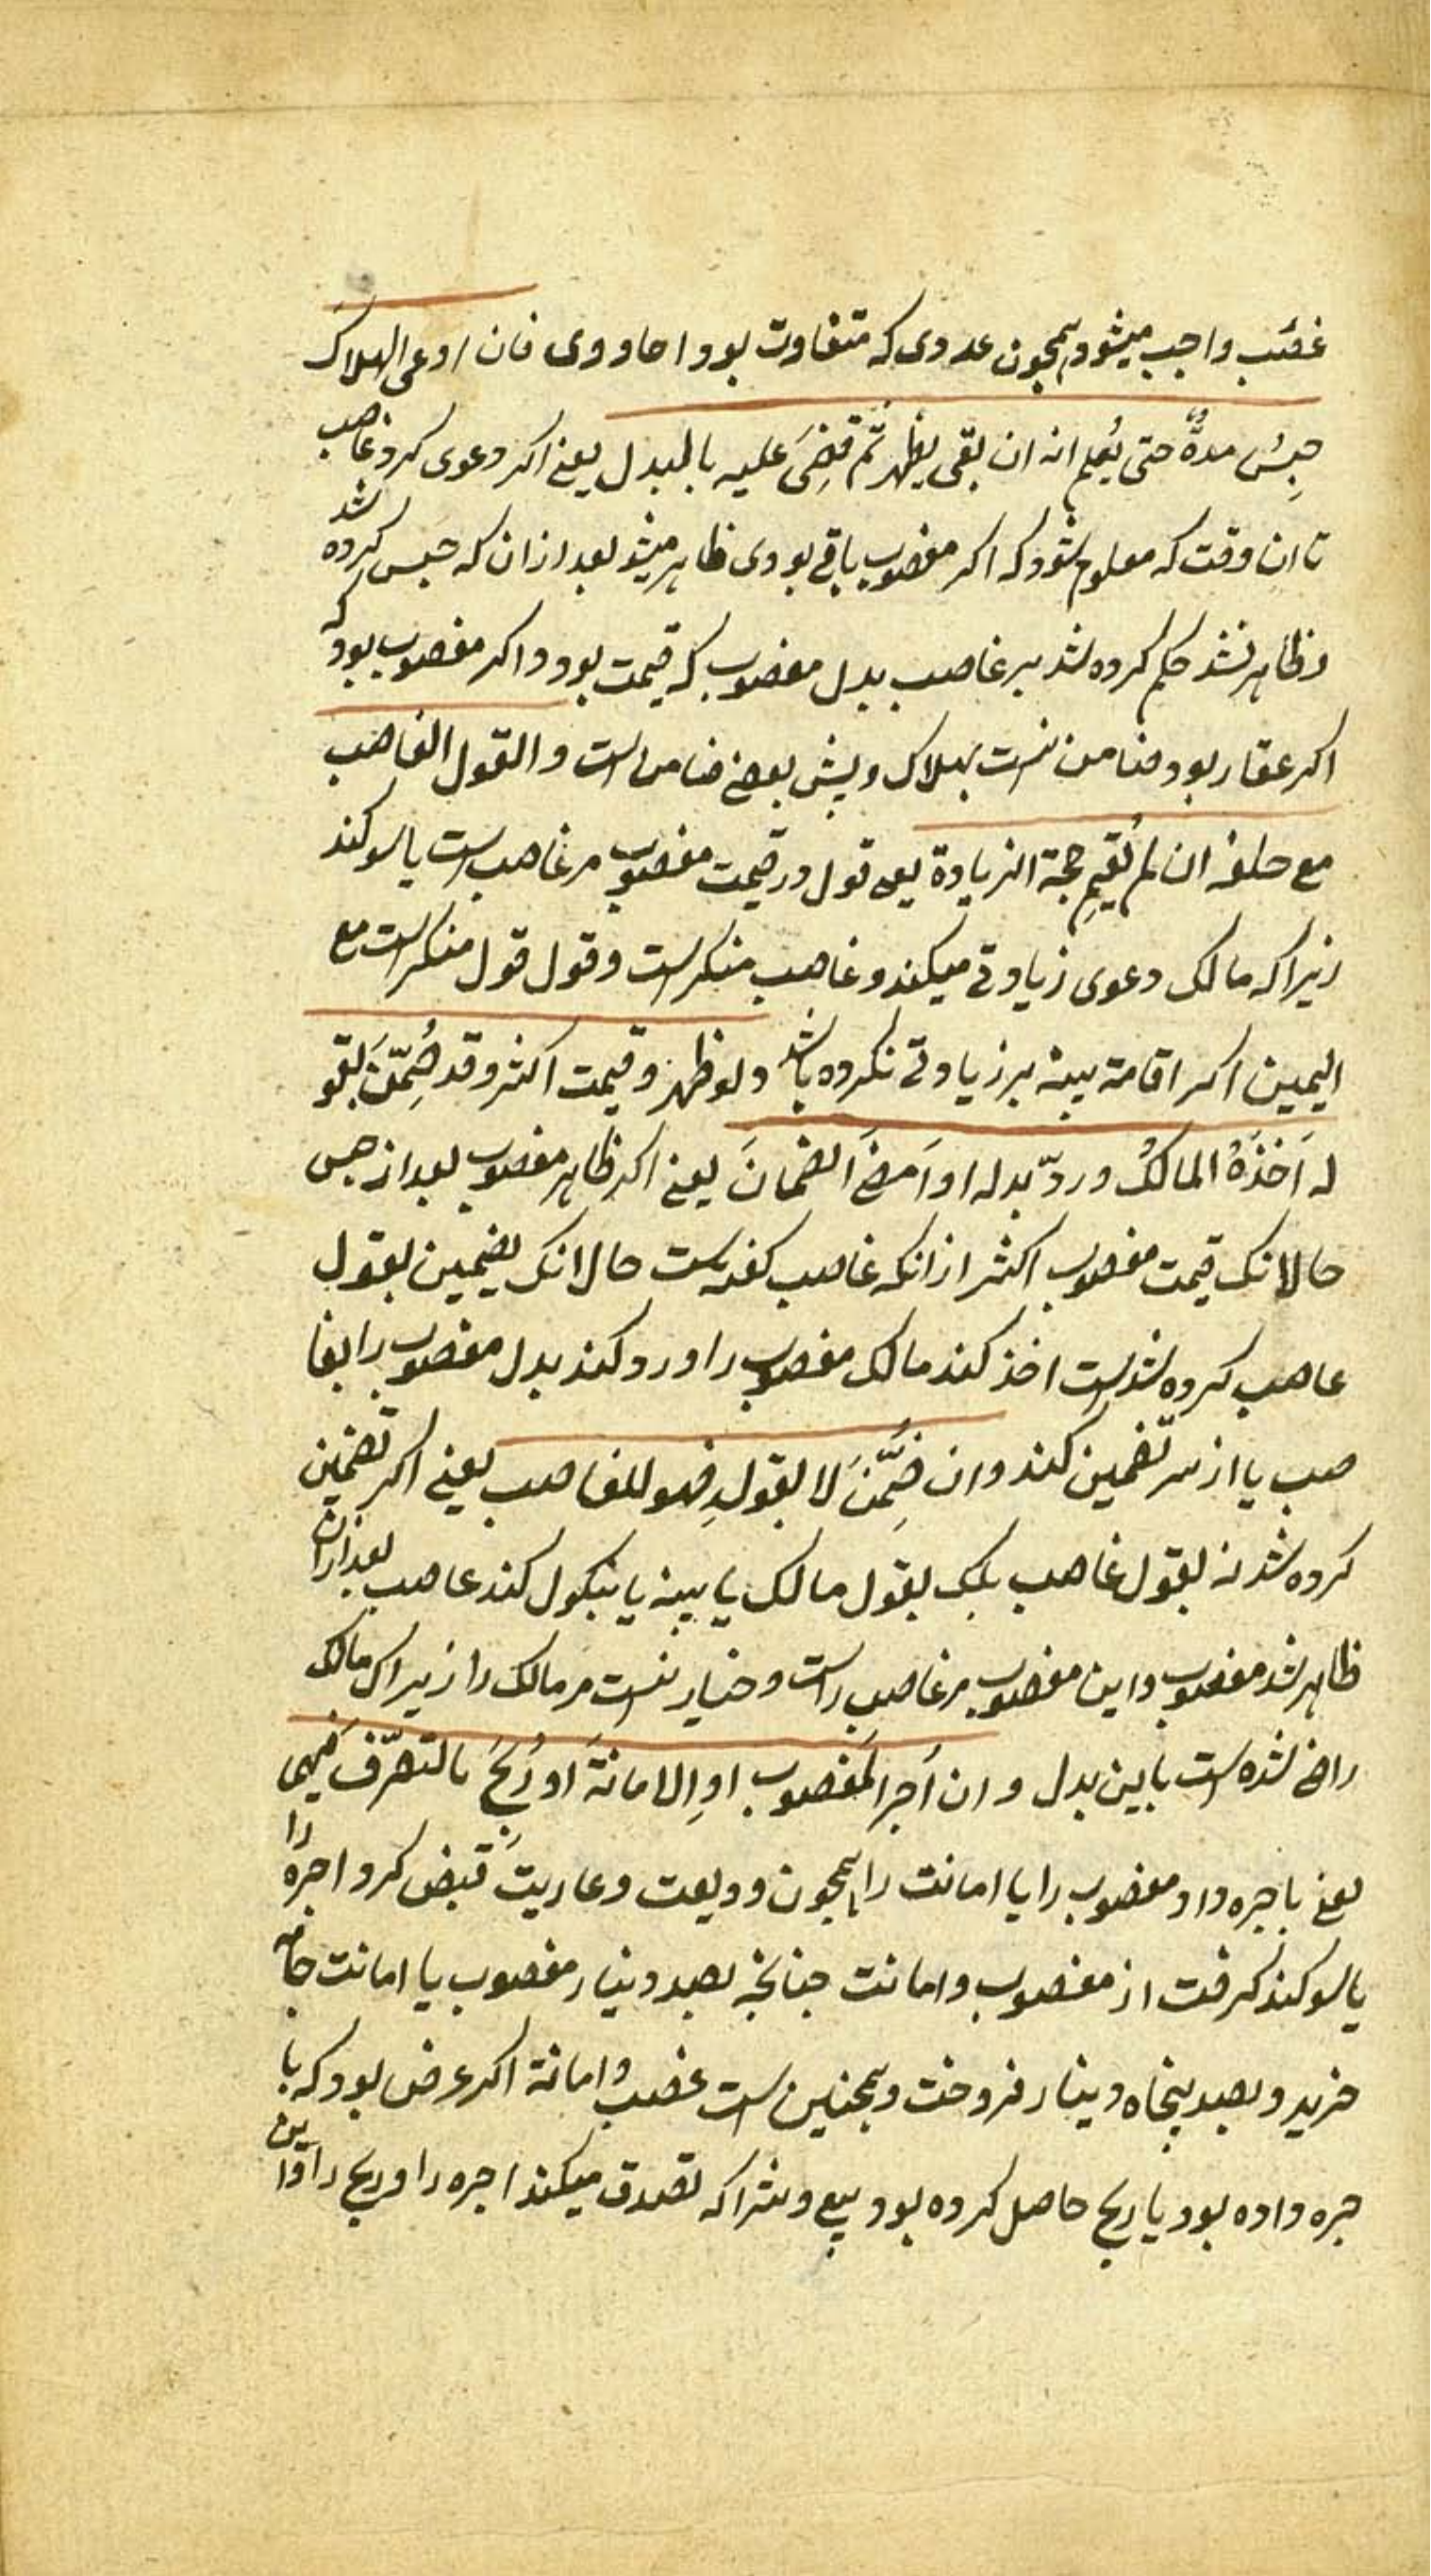 غصب واجب میشود همچون عددی که متفاوت بود واحاد وی فان ادعی الهلاک
حبس مدة حتی یُعلم انه ان بقی یظهر ثم قضی علیه بالبدل یعنی اکر دعوی کرد غاصب
تا ان وقت که معلوم شود که اکر مغصوب باقی بودی ظاهر میشد بعد از ان که حبس کرده شد
و ظاهر نشد حکم کرده شد بر غاصب ببدل مغصوب که قیمت بود و اکر مغصوب بود که
اکر عقار بود ضامن نیست بهلاک و پیش بعضی ضامن است والقول الغاصب
مع حلفه ان لم تُقم حجة الزیادة یعنی قول در قیمت مغصوب مر غاصب است با سوکند
زیرا که مالک دعوی زیادتی میکند و غاصب منکر است و قول قول منکر است مع
الیمین اکر اقامت بینه بر زیادتی نکرده باشد ولو ظهر و قیمت اکثر وقد ضُمّن بقو
له اَخَذَهُ المالکُ وردّ بدله او اَمضی الضمانَ یعنی اکر ظاهر مغصوب بعد از حبس
حالانک قیمت مغصوب اکثر از انکه غاصب کفته است حالانک تضمین بقول
غاصب کرده شده است اخذ کند مالک مغصوب را و رد کند بدل مغصوب را بغا
صب یا از سر تضمین کند وان ضُمّنَ لا بقوله فهو للغاصب یعنی اکر تضمین
کرده شد نه بقول غاصب بلک بقول مالک یا بینه یا بنکول کند غاصب بعد از ان
ظاهر شد مغصوب و این مغصوب مر غاصب راست و خیار نیست مر مالک را زیراک مالک
راضی شده است باین بدل وان اَجر المغصوب او الامانة او رُبحَ بالتصرّف فیهی
یعنی باجره داد مغصوب را یا امانت را همچون ودیعت و عاریت قبض کرد اجره را
یا سود کرفت از مغصوب و امانت چنانچه بصد دینار مغصوب یا امانت جامه
خرید و بصد پنجاه دینار فروخت و همچنین است غصب و امانة اکر عرض بود که با
جره داده بود یا ربح حاصل کرده بود ببیع و شرا که تصدق میکند اجره را و ربح را و این